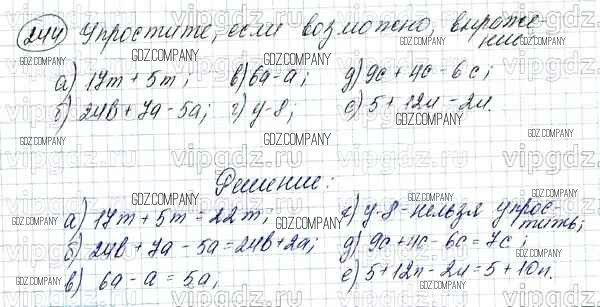 244 Упростите, если возможно, выраже-
ние:
а) 17m + 5m; в) 6a - a; д) 9c + 4c - 6c;
б) 24b + 7a - 5a; г) y - 8; е) 5 + 12n - 2n.
Решение:
а) 17m + 5m = 22m; г) y - 8 - нельзя упрос-
тить;
б) 24b + 7a - 5a = 24b + 2a; д) 9c + 4c - 6c = 7c;
в) 6a - a = 5a; е) 5 + 12n - 2n = 5 + 10n.
GDZ.COMPANY
vipgdz.ru